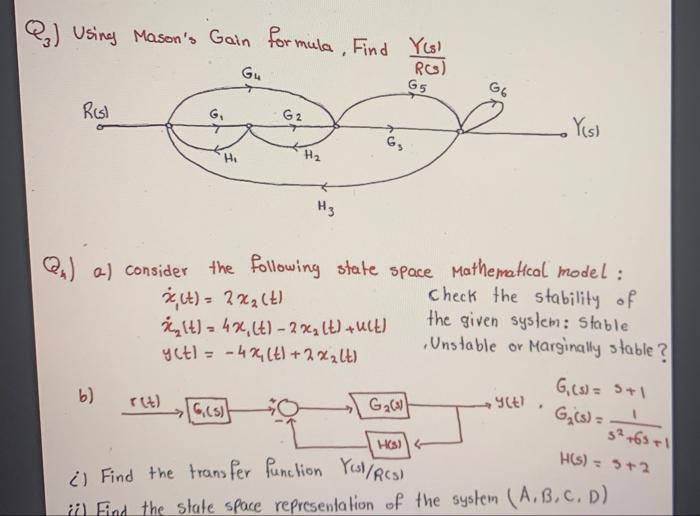 Q3) Using Mason's Gain formula, Find Y(s)/R(s)
G4
G5
G6
R(s)
G1
G2
Y(s)
G3
H1
H2
H3
Q4) a) consider the following state space Mathematical model :
ẋ1(t) = 2x2(t)
Check the stability of
ẋ2(t) = 4x1(t) - 2x2(t) + u(t)
the given system: Stable
y(t) = -4x1(t) + 2x2(t)
, Unstable or Marginally stable ?
b)
r(t)
G1(s)
+
-
G2(s)
y(t) .
H(s)
G1(s) = s+1
G2(s) = 1/(s²+6s+1)
H(s) = s+2
i) Find the transfer function Y(s)/R(s)
ii) Find the state space representation of the system (A,B,C,D)